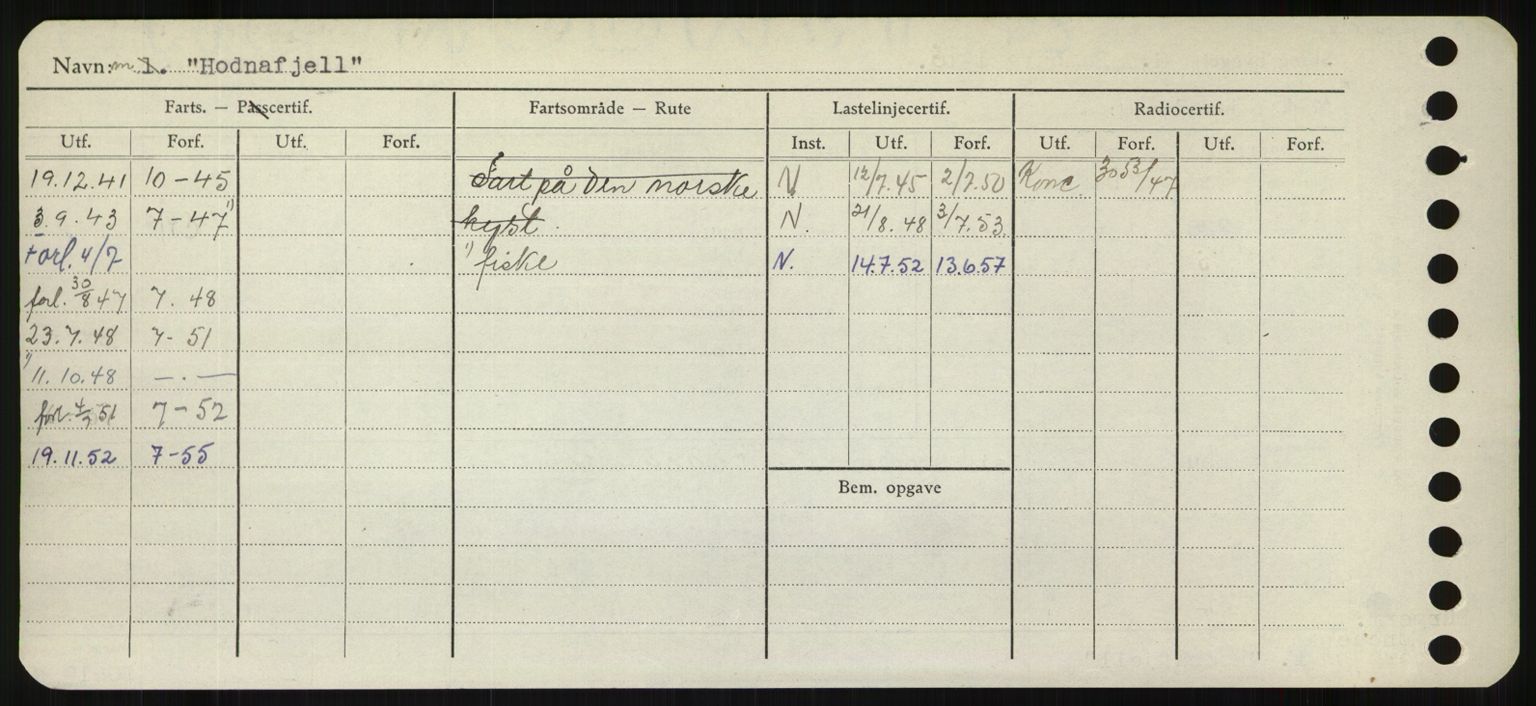 Navn: m l. "Hodnafjell"
Farts. — Passcertif. Fartsområde — Rute Lastelinjecertif. Radiocertif.
Utf. Forf. Utf. Forf. Inst. Utf. Forf. Utf. Forf. Utf. Forf.
19.12.41 10-45 Fart på den norske N 12/7.45 2/7.50 Konc. 3053/47
3.9.43 7-47 1) kyst. N. 21/8.48 3/7.53
forl. 4/7 1) fiske N. 14.7.52 13.6.57
forl. 30/8 47 7.48
23.7.48 7-51
1) 11.10.48 —.—
forl. 4/7 51 7-52
19.11.52 7-55
Bem. opgave